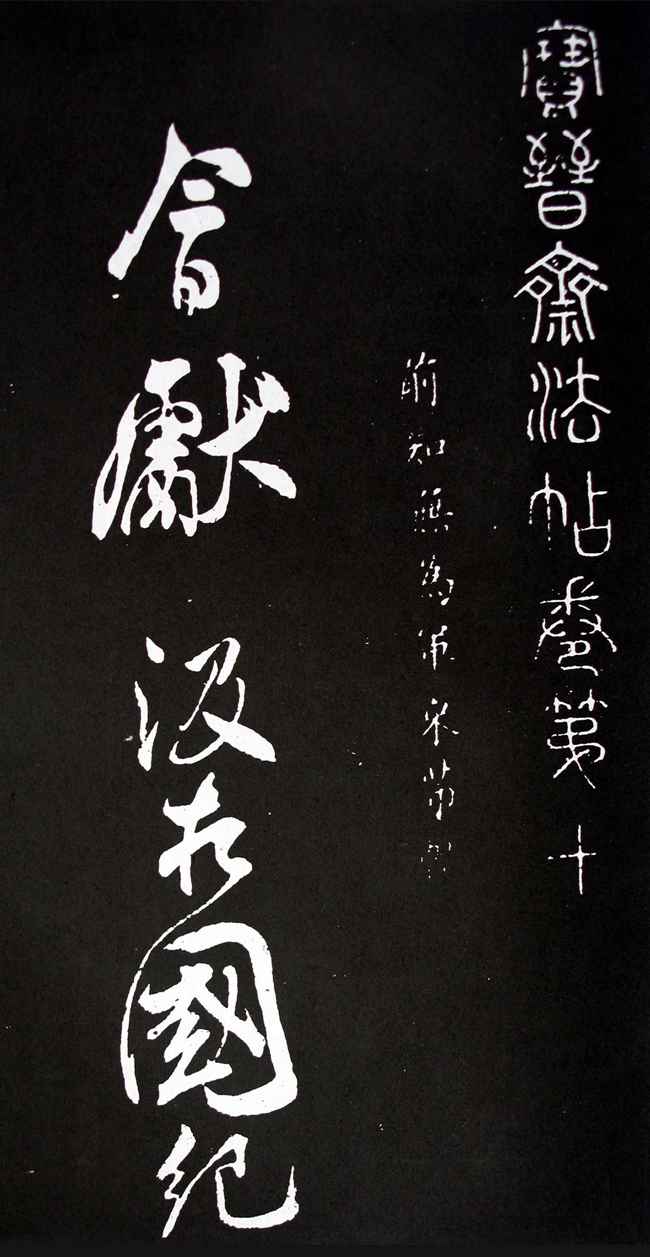 寶晉齋法帖卷第十
前知無為軍米芾
會獻汲國紀